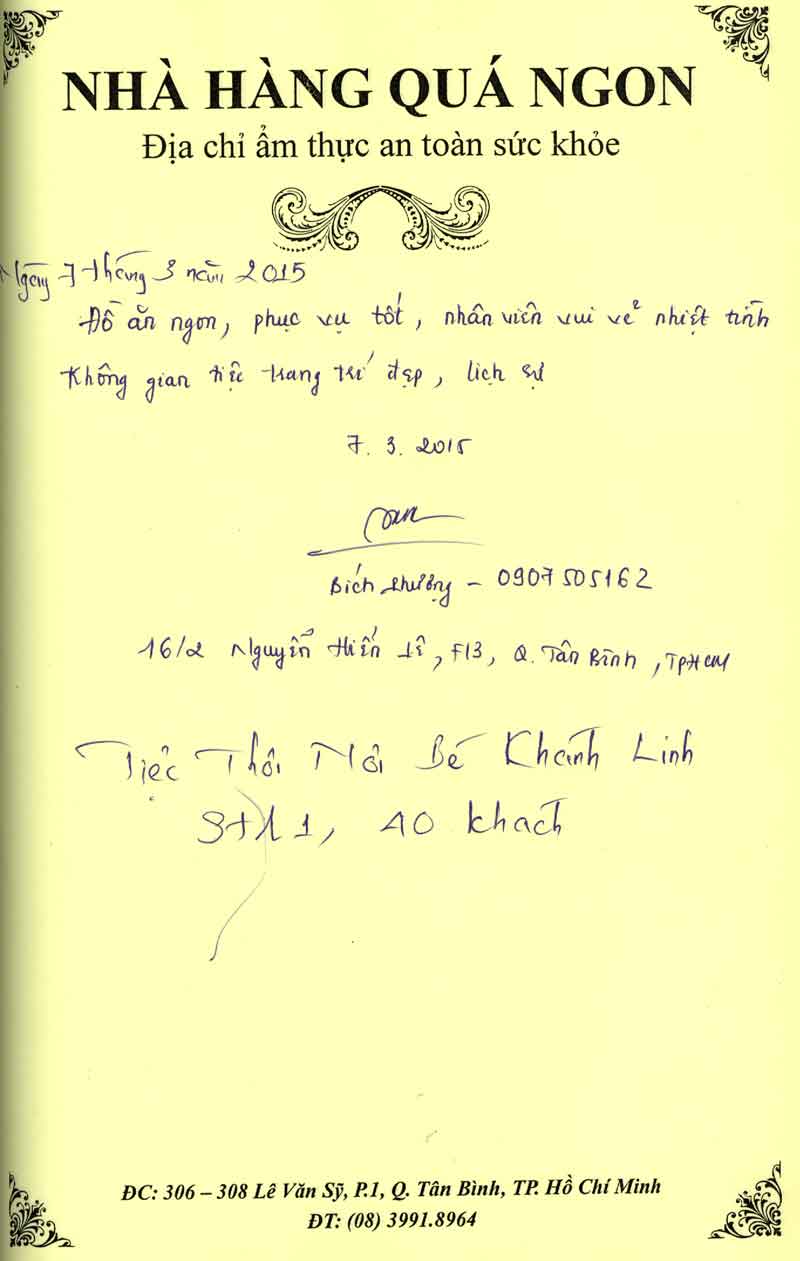 NHÀ HÀNG QUÁ NGON
Địa chỉ ẩm thực an toàn sức khỏe
Ngày 7 tháng 3 năm 2015
Đồ ăn ngon, phục vụ tốt, nhân viên vui vẻ nhiệt tình
Không gian tiệc trang trí đẹp, lịch sự
7. 3. 2015
Bích Phượng - 0907505162
16/2 Nguyễn Hiến Lê, F13, Q. Tân Bình, TPHCM
Tiệc Thôi Nôi Bé Khánh Linh
40 khách
ĐC: 306 – 308 Lê Văn Sỹ, P.1, Q. Tân Bình, TP. Hồ Chí Minh
ĐT: (08) 3991.8964